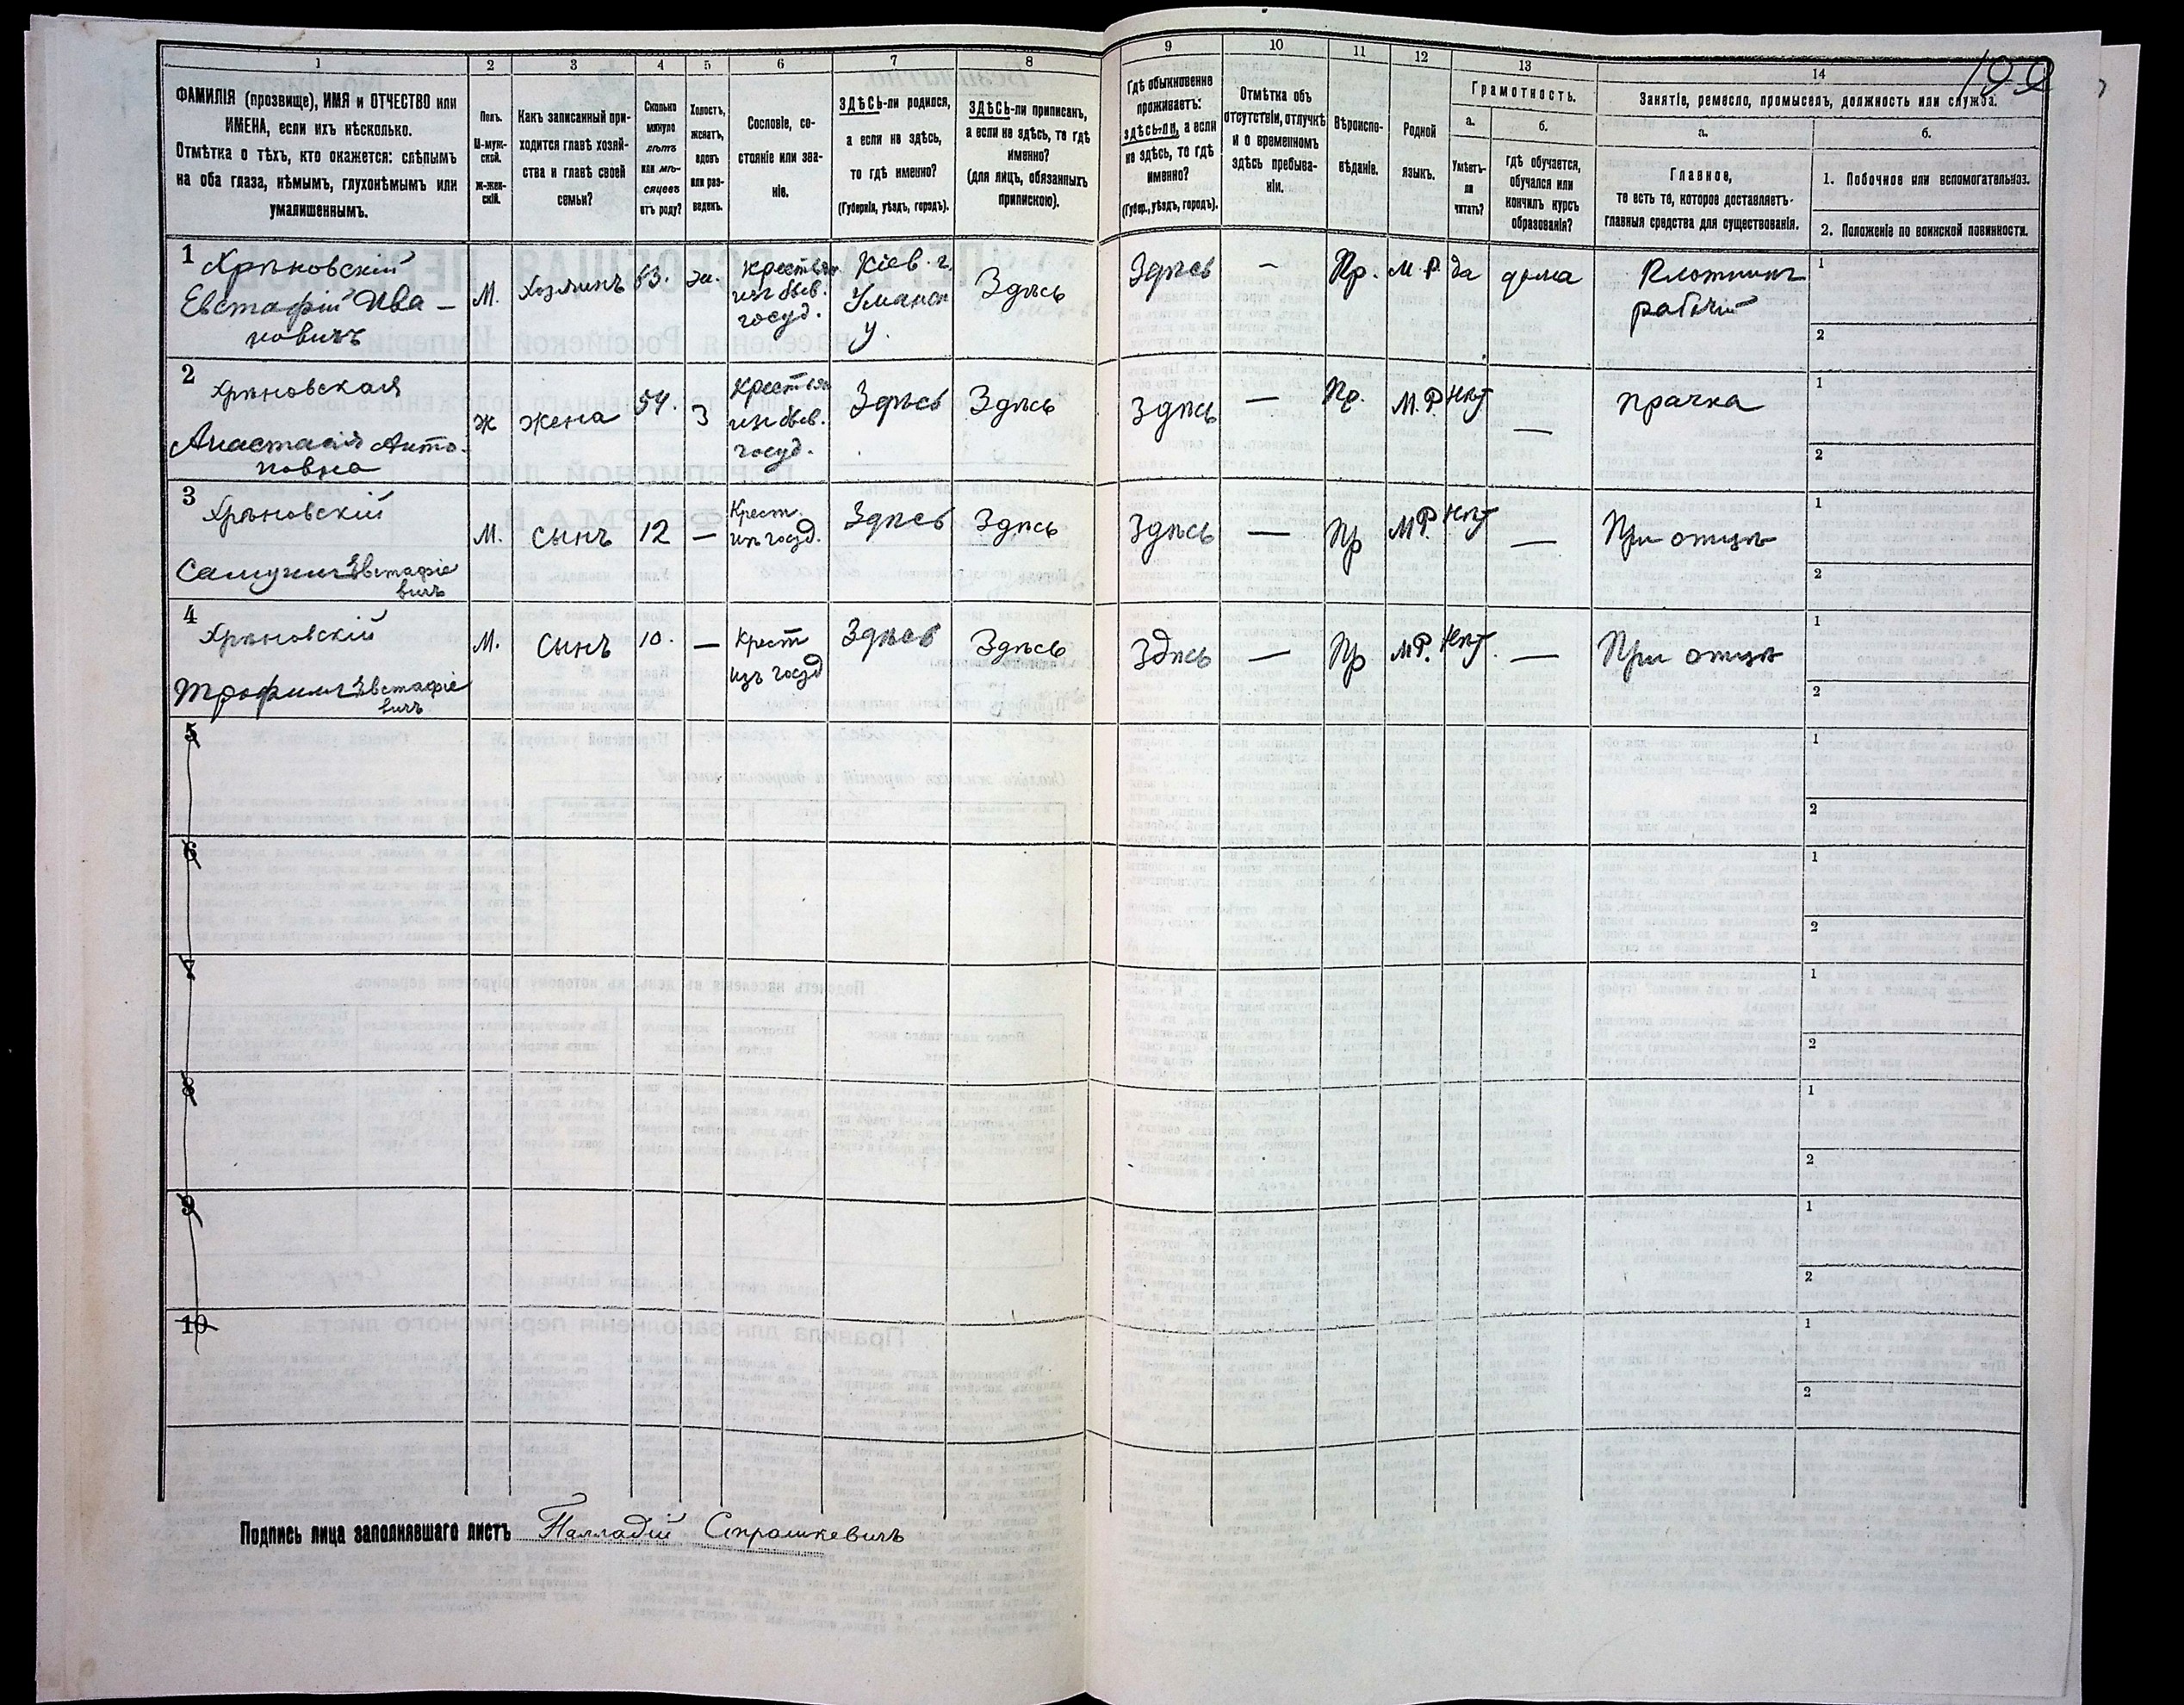 199
1 2 3 4 5 6 7 8 9 10 11 12 13 14
ФАМИЛІЯ (прозвище), ИМЯ и ОТЧЕСТВО или
ИМЕНА, если ихъ нѣсколько.
Отмѣтка о тѣхъ, кто окажется: слѣпымъ
на оба глаза, нѣмымъ, глухонѣмымъ или
умалишеннымъ.
Полъ.
М-муж-
ской.
Ж-жен-
скій.
Какъ записанный при-
ходится главѣ хозяй-
ства и главѣ своей
семьи?
Сколько
минуло
лѣтъ
или мѣ-
сяцевъ
отъ роду?
Холостъ,
женатъ,
вдовъ
или раз-
веденъ.
Сословіе, со-
стояніе или зва-
ніе.
ЗДѢСЬ-ли родился,
а если не здѣсь,
то гдѣ именно?
(Губернія, уѣздъ, городъ).
ЗДѢСЬ-ли приписан,
а если не здѣсь, то гдѣ
именно?
(для лицъ, обязанныхъ
припискою).
Гдѣ обыкновенно
проживаетъ:
здѣсь-ли, а если
не здѣсь, то гдѣ
именно?
(Губер., уѣздъ, городъ).
Отмѣтка объ
отсутствіи, отлучкѣ
и о временномъ
здѣсь пребыва-
ніи.
Вѣроиспо-
вѣданіе.
Родной
языкъ.
Грамотность.
а.
Умѣетъ-
ли
читать?
б.
гдѣ обучается,
обучался или
кончилъ курсъ
образованія?
Занятіе, ремесло, промыселъ, должность или служба.
а.
Главное,
то есть то, которое доставляетъ
главныя средства для существованія.
б.
1. Побочное или вспомогательное.
2. Положеніе по воинской повинности.
1 Хрѣновскій
Евстафій Ива-
новичъ
М. Хозяинъ 63. ж.
крестьян.
изъ быв.
госуд.
Кіев. г.
Уманск
у.
Здѣсь Здѣсь — Пр. М.Р. да дома
Плотникъ
рабочій
1
2
2 Хрѣновская
Анастасія Анто-
новна
ж жена 54. З
крестьян
изъ быв.
госуд.
Здѣсь Здѣсь Здѣсь — Пр. М.Р. нѣт — прачка
1
2
3 Хрѣновскій
Самуилъ Евстафіе
вичъ
М. сынъ 12 —
Крест.
изъ госуд.
Здѣсь Здѣсь Здѣсь — Пр М.Р. нѣт — При отцѣ
1
2
4 Хрѣновскій
Трофимъ Евстафіе
вичъ
М. сынъ 10. —
Крест
изъ госуд
Здѣсь Здѣсь Здѣсь — Пр М.Р. нѣт. — При отцѣ
1
2
5 1
2
6 1
2
7 1
2
8 1
2
9 1
2
10 1
2
Подпись лица заполнявшаго листъ Палладій Страшкевичъ